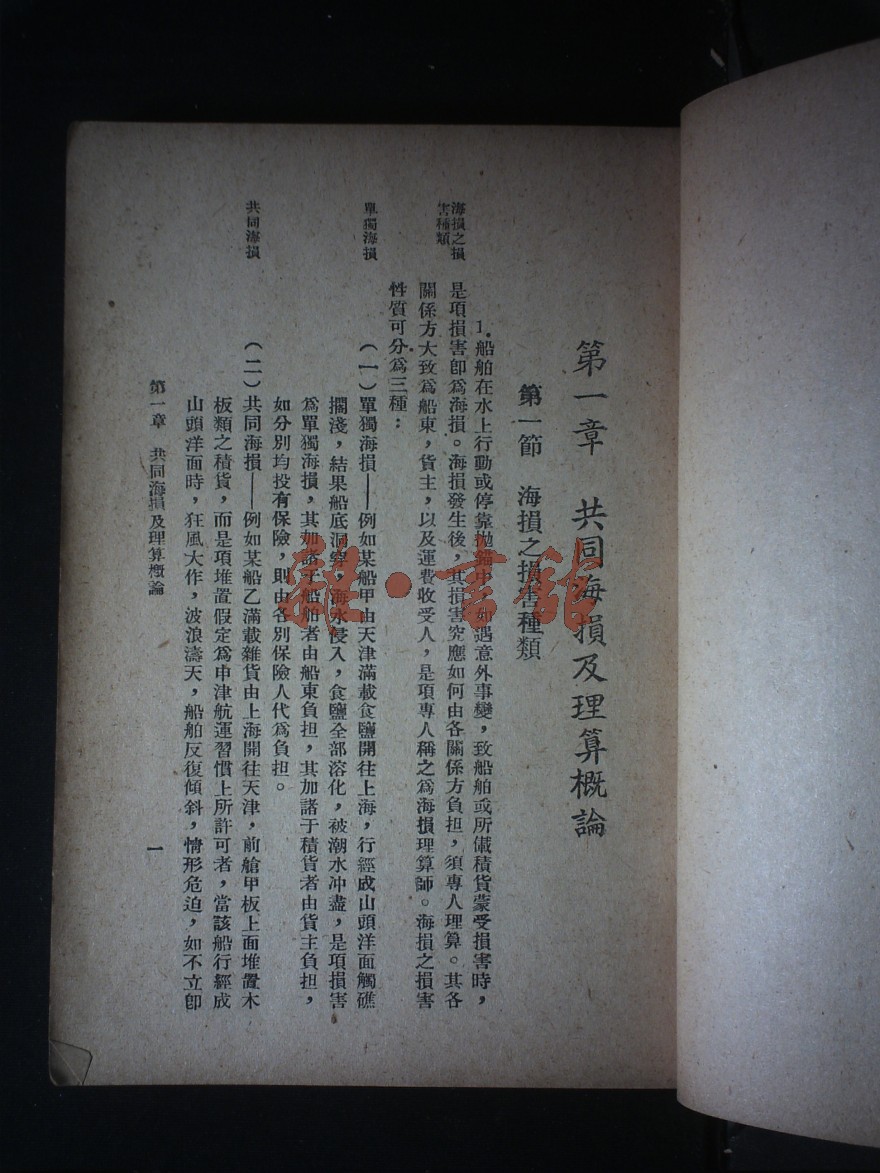 第一章　共同海損及理算概論
第一節　海損之損害種類
海損之損
害種類
1.船舶在水上行動或停靠拋錨中，如遇意外事變，致船舶或所儎積貨蒙受損害時，
是項損害卽爲海損。海損發生後，其損害究應如何由各關係方負担，須專人理算。其各
關係方大致爲船東，貨主，以及運費收受人，是項專人稱之爲海損理算師。海損之損害
性質可分爲三種：
單獨海損
（一）單獨海損——例如某船甲由天津滿載食鹽開往上海，行經成山頭洋面觸礁
擱淺，結果船底洞穿，海水侵入，食鹽全部溶化，被潮水冲盡，是項損害
爲單獨海損，其加諸于船舶者由船東負担，其加諸于積貨者由貨主負担，
如分別均投有保險，則由各別保險人代爲負担。
共同海損
（二）共同海損——例如某船乙滿載雜貨由上海開往天津，前艙甲板上面堆置木
板類之積貨，而是項堆置假定爲申津航運習慣上所許可者，當該船行經成
山頭洋面時，狂風大作，波浪濤天，船舶反復傾斜，情形危迫，如不立卽
第一章　共同海損及理算概論
一
雜·言館